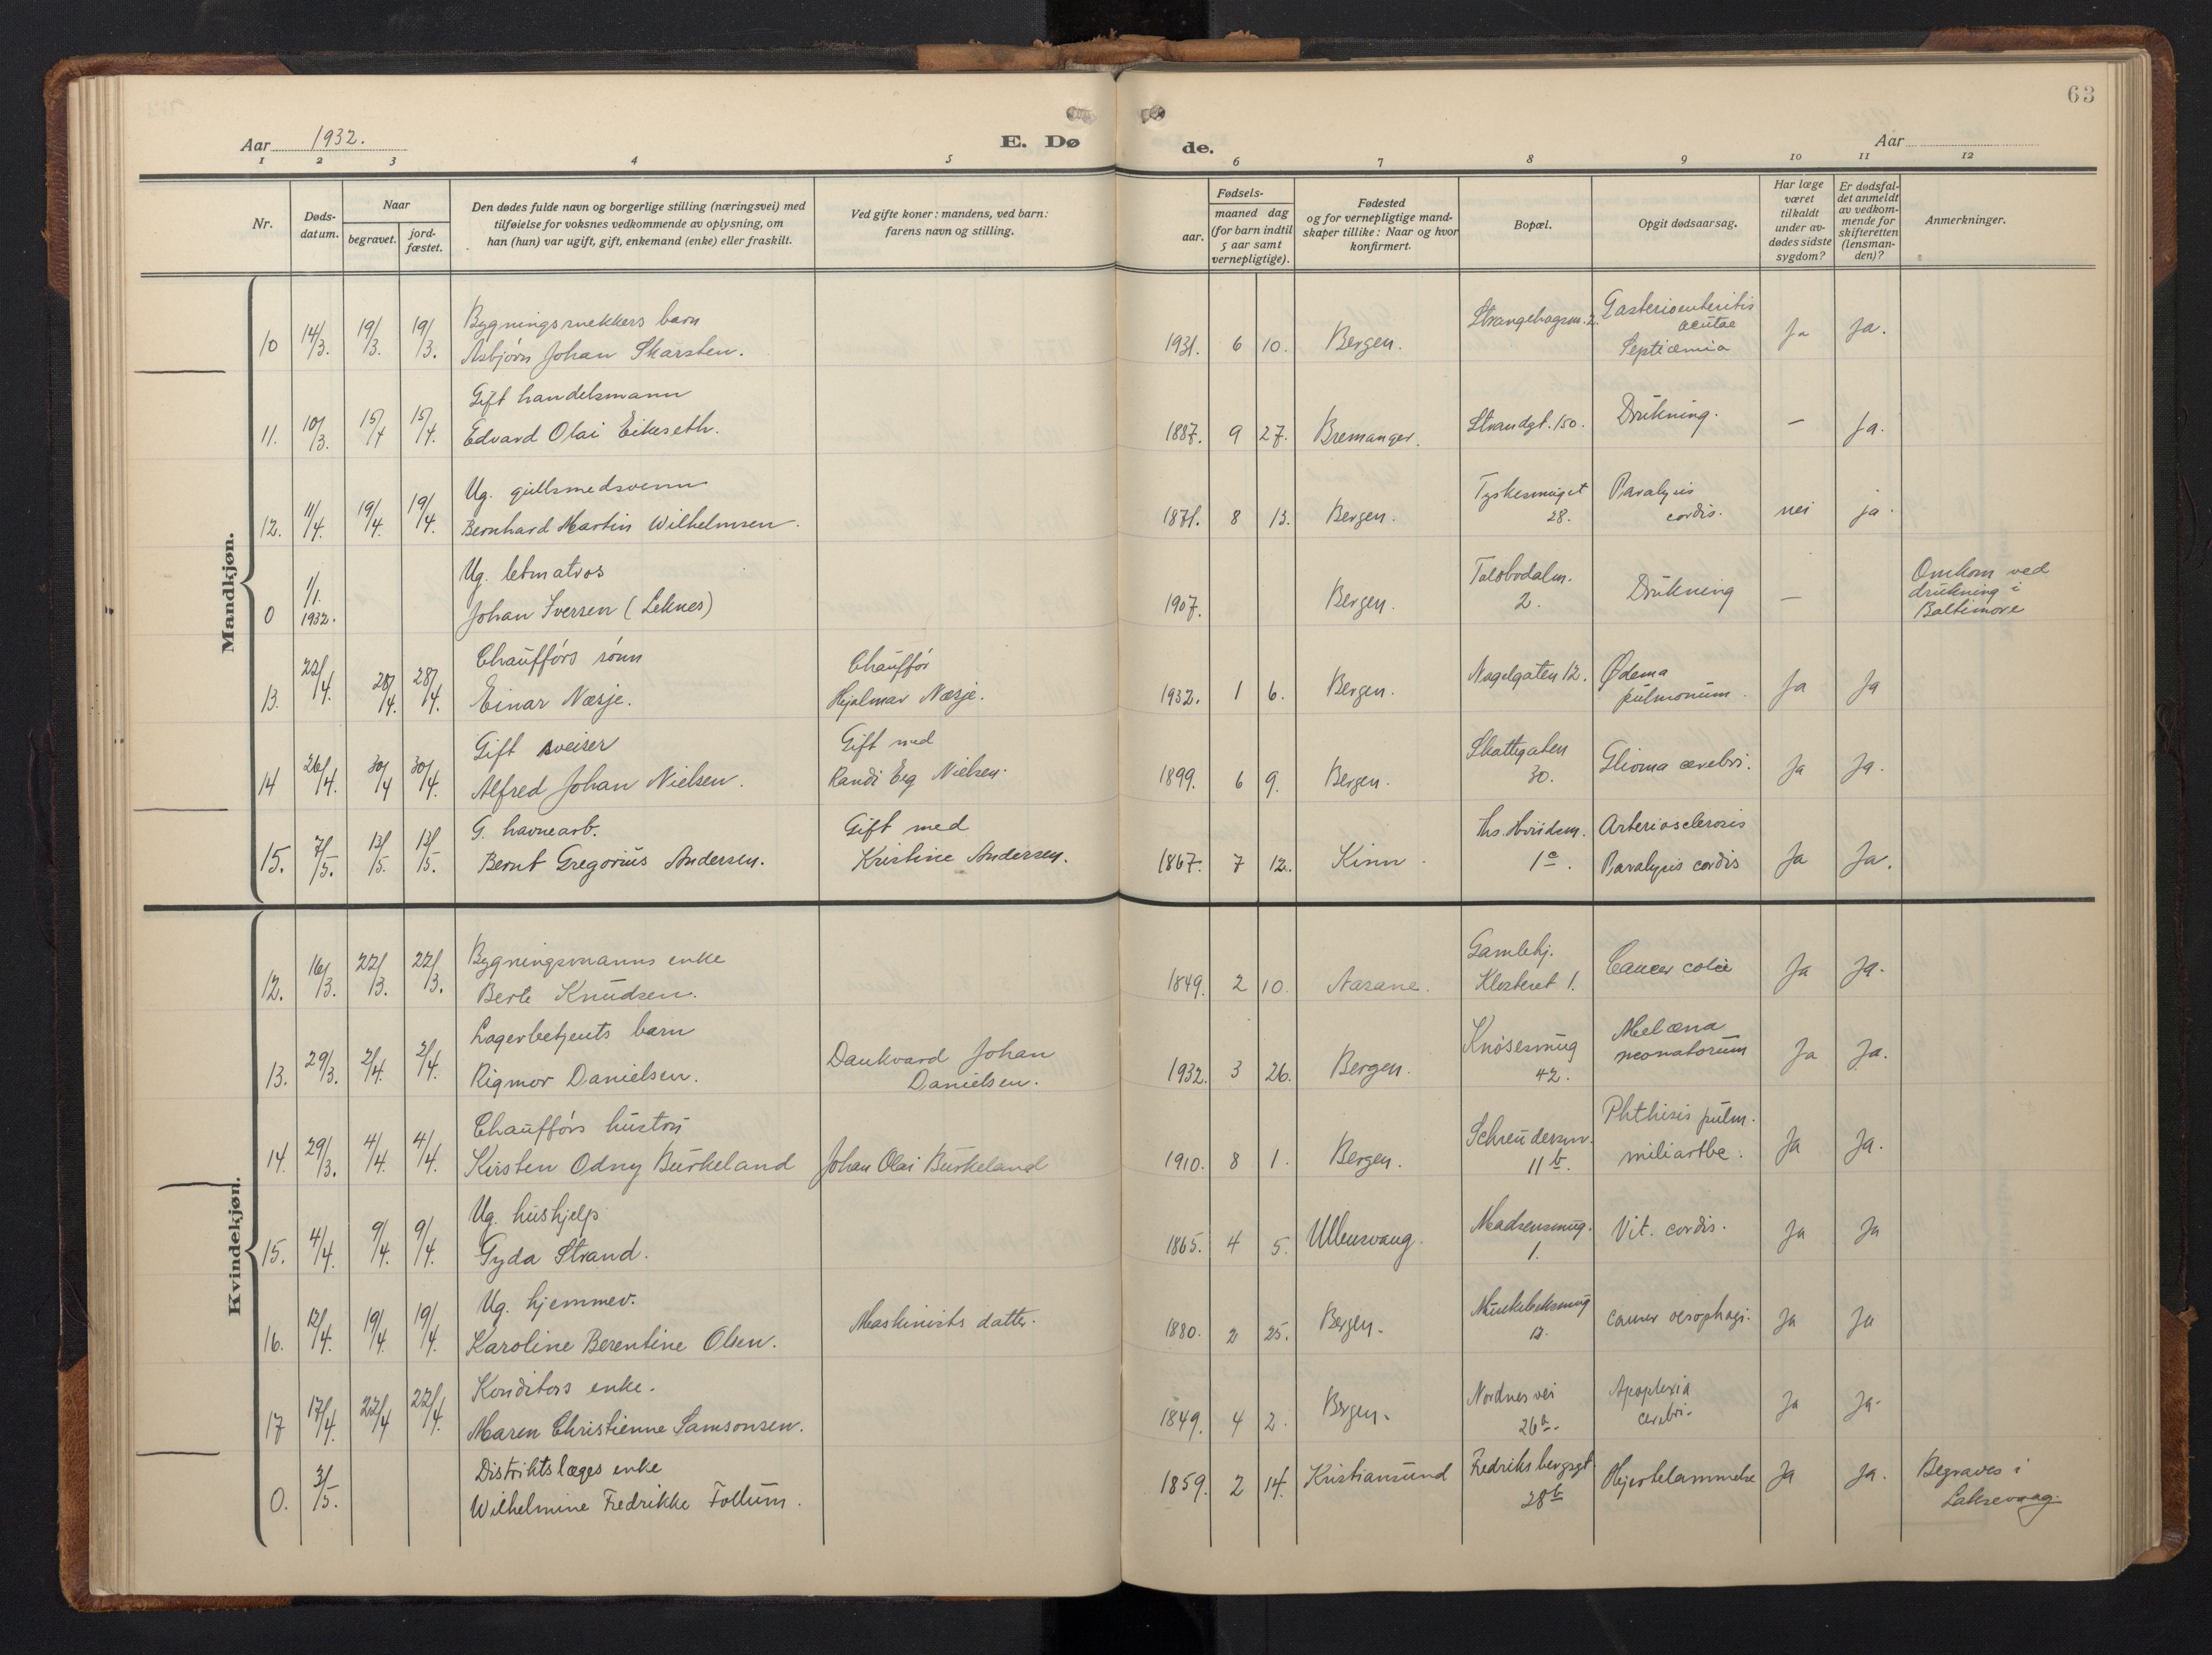 63
Aar 1932.
E. Dø de.
Aar
1 2 3 4 5 6 7 8 9 10 11 12
Nr.
Døds-datum.
Naar
begravet.
jord-fæstet.
Den dødes fulde navn og borgerlige stilling (næringsvei) med
tilføielse for voksnes vedkommende av oplysning, om
han (hun) var ugift, gift, enkemand (enke) eller fraskilt.
Ved gifte koner: mandens, ved barn:
farens navn og stilling.
Fødsels-
aar.
maaned dag
(for barn indtil
5 aar samt
vernepligtige).
Fødested
og for vernepligtige mand-
skaper tillike: Naar og hvor
konfirmert.
Bopæl.
Opgit dødsaarsag.
Har læge
været
tilkaldt
under av-
dødes sidste
sygdom?
Er dødsfal-
det anmeldt
av vedkom-
mende for
skifteretten
(lensman-
den)?
Anmerkninger.
Mandkjøn.
Bygningssnekkers barn Strangehagsm. 2. Gasterioenteritis
acutae
10 14/3. 19/3. 19/3. Asbjørn Johan Skarsten. 1931. 6 10. Bergen. Septicæmia Ja Ja.
Gift handelsmann
11. 10/3. 15/4 15/4. Edvard Olai Eikeseth. 1887. 9 27. Bremanger. Strandgt. 150. Drukning. — Ja.
Ug. gullsmedsvenn Tyskesmuget Paralysis
12. 11/4. 19/4. 19/4. Bernhard Martin Wilhelmsen. 1871. 8 13. Bergen. 28. cordis. nei ja.
Ug. letmatros Omkom ved
0 1/1. 1932. Johan Iversen (Leknes) 1907. Bergen. 2. Drukning — drukning i
Baltimore
Chauffórs sónn Chauffór
13. 22/4. 28/4. 28/4. Einar Næsje. Hjalmar Næsje. 1932. 1 6. Bergen. Nagelgaten 12. Ødema
pulmonum. Ja Ja
Gift sveiser Gift med Skottegaten
14 26/4. 30/4 30/4. Alfred Johan Nielsen. Randi Nielsen. 1899. 6 9. Bergen. 30. Glioma cerebri. Ja Ja.
G. havnearb. Gift med Arteriosclerosis
15. 7/5. 13/5. 13/5. Bernt Gregorius Andersen. Kristine Andersen. 1867. 7 12. Kinn. 1c. Paralysis cordis Ja Ja.
Kvindekjøn.
Bygningsmanns enke Gamlehj.
12. 16/3. 22/3. 22/3. Berte Knudsen. 1849. 2 10. Aasane. Klosteret 1. Cancer colii Ja Ja.
Lagerbetjents barn Dankvard Johan Knøsesmug Melæna
13. 29/3. 2/4. 2/4. Rigmor Danielsen. Danielsen. 1932. 3 26. Bergen. 42. neonatorum Ja Ja.
Chauffórs hustru Phthisis pulm.
14. 29/3. 4/4. 4/4. Kirsten Odny Burkeland Johan Olai Burkeland 1910. 8 1. Bergen. Schreudersm. 11b. miliartbc. Ja Ja.
Ug. hushjelp Madsensmug.
15. 4/4. 9/4. 9/4. Gyda Strand. 1865. 4 5. Ullensvang. 1. Vit. cordis. Ja Ja
Ug. hjemmev. Maskinists datter.
16. 12/4. 19/4. 19/4. Karoline Berentine Olsen. 1880. 2 25. Bergen. Munkebeksmug 12. cancer oesophagi. Ja Ja
Konditors enke. Nordnesvei Apoplexia
17 17/4. 22/4 22/4. Maren Christienne Samsonsen. 1849. 4 2. Bergen. 26a. cerebri. Ja Ja.
Distriktslæges enke Fredriksbergsgt. Begraves i
0. 3/5. Wilhelmine Fredrikke Follum. 1859. 2 14. Kristiansund 28b Hjertelammelse Ja Ja. Laksevaag.